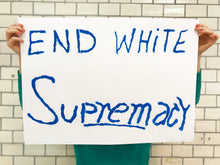 END WHITE
Supremacy